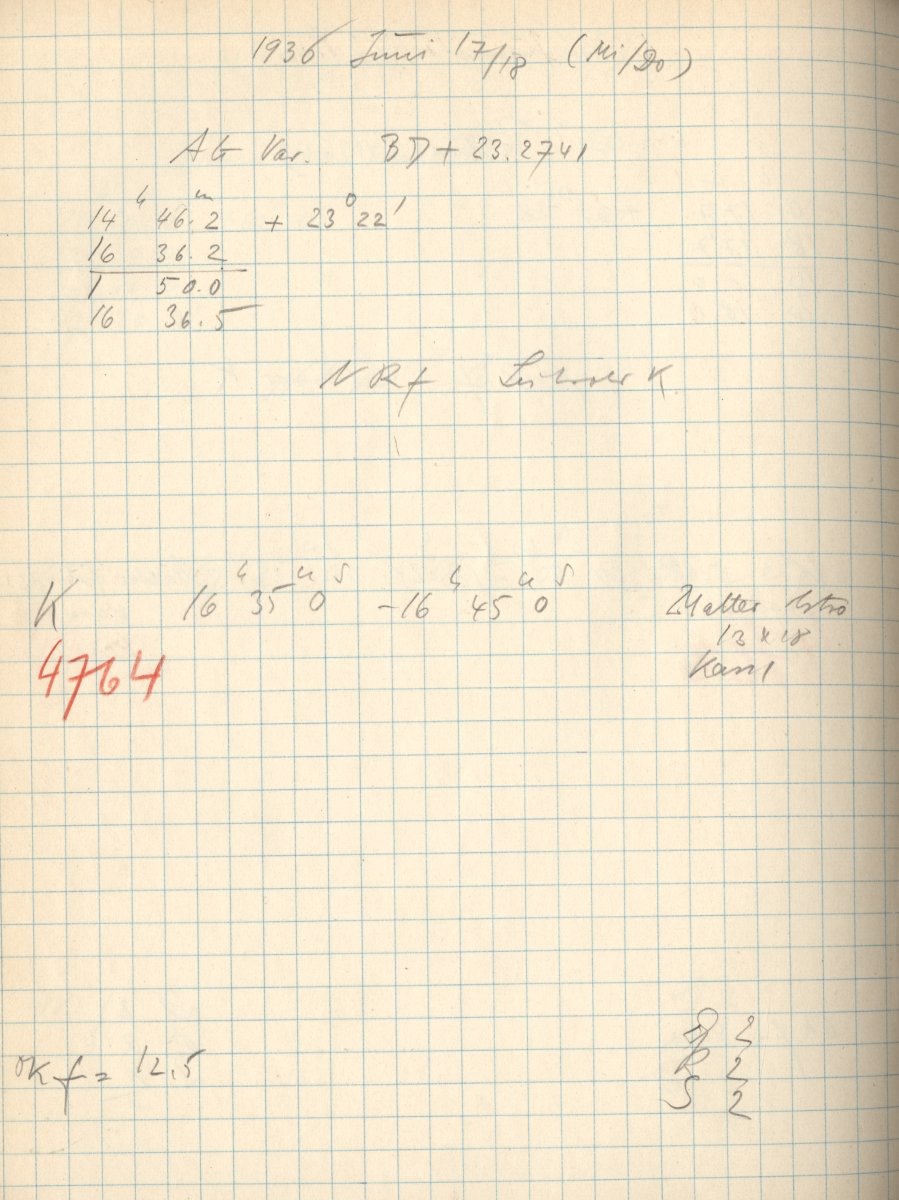 1936 Juni 17/18 (Mi/Do)
AG Var. BD + 23.2741
14h 46.m2 + 23° 22'
16 36.2
1 50.0
16 36.5
NRf K
K 16h 35m 0s - 16h 45m 0s Matter Astro
4764 13 x 18
Kass 1
K f = 12.5
2
R 2
S 2